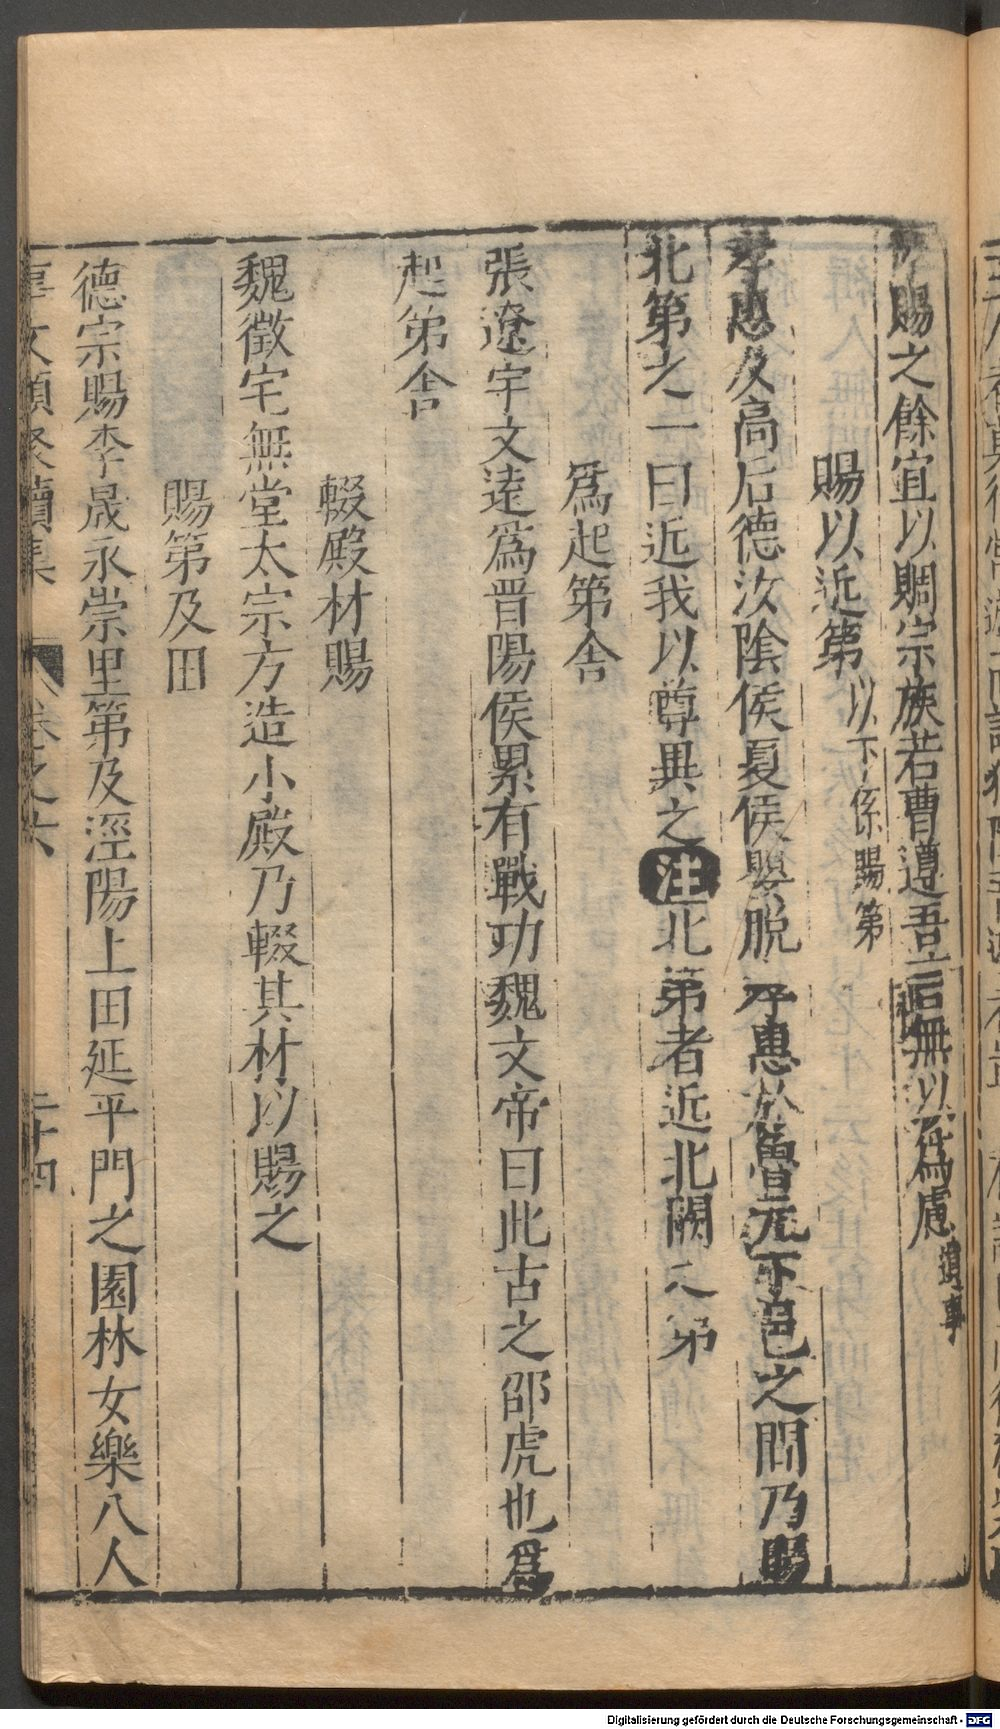 賜之餘宜以賙宗族若曹遵吾言後無以爲慮遺事
賜以近第以下係賜第
孝惠及高后德汝陰侯夏侯嬰脫孝惠於魯元下邑之間乃賜
北第之一曰近我以尊異之注北第者近北闕之第
爲起第舍
張遼字文遠爲晋陽侯累有戰功魏文帝曰此古之邵虎也爲
起第舍
輟殿材賜
魏徵宅無堂太宗方造小殿乃輟其材以賜之
賜第及田
德宗賜李晟永崇里第及涇陽上田延平門之園林女樂八人
事文類聚續集 卷之六 二十四
Digitalisierung gefördert durch die Deutsche Forschungsgemeinschaft - DFG